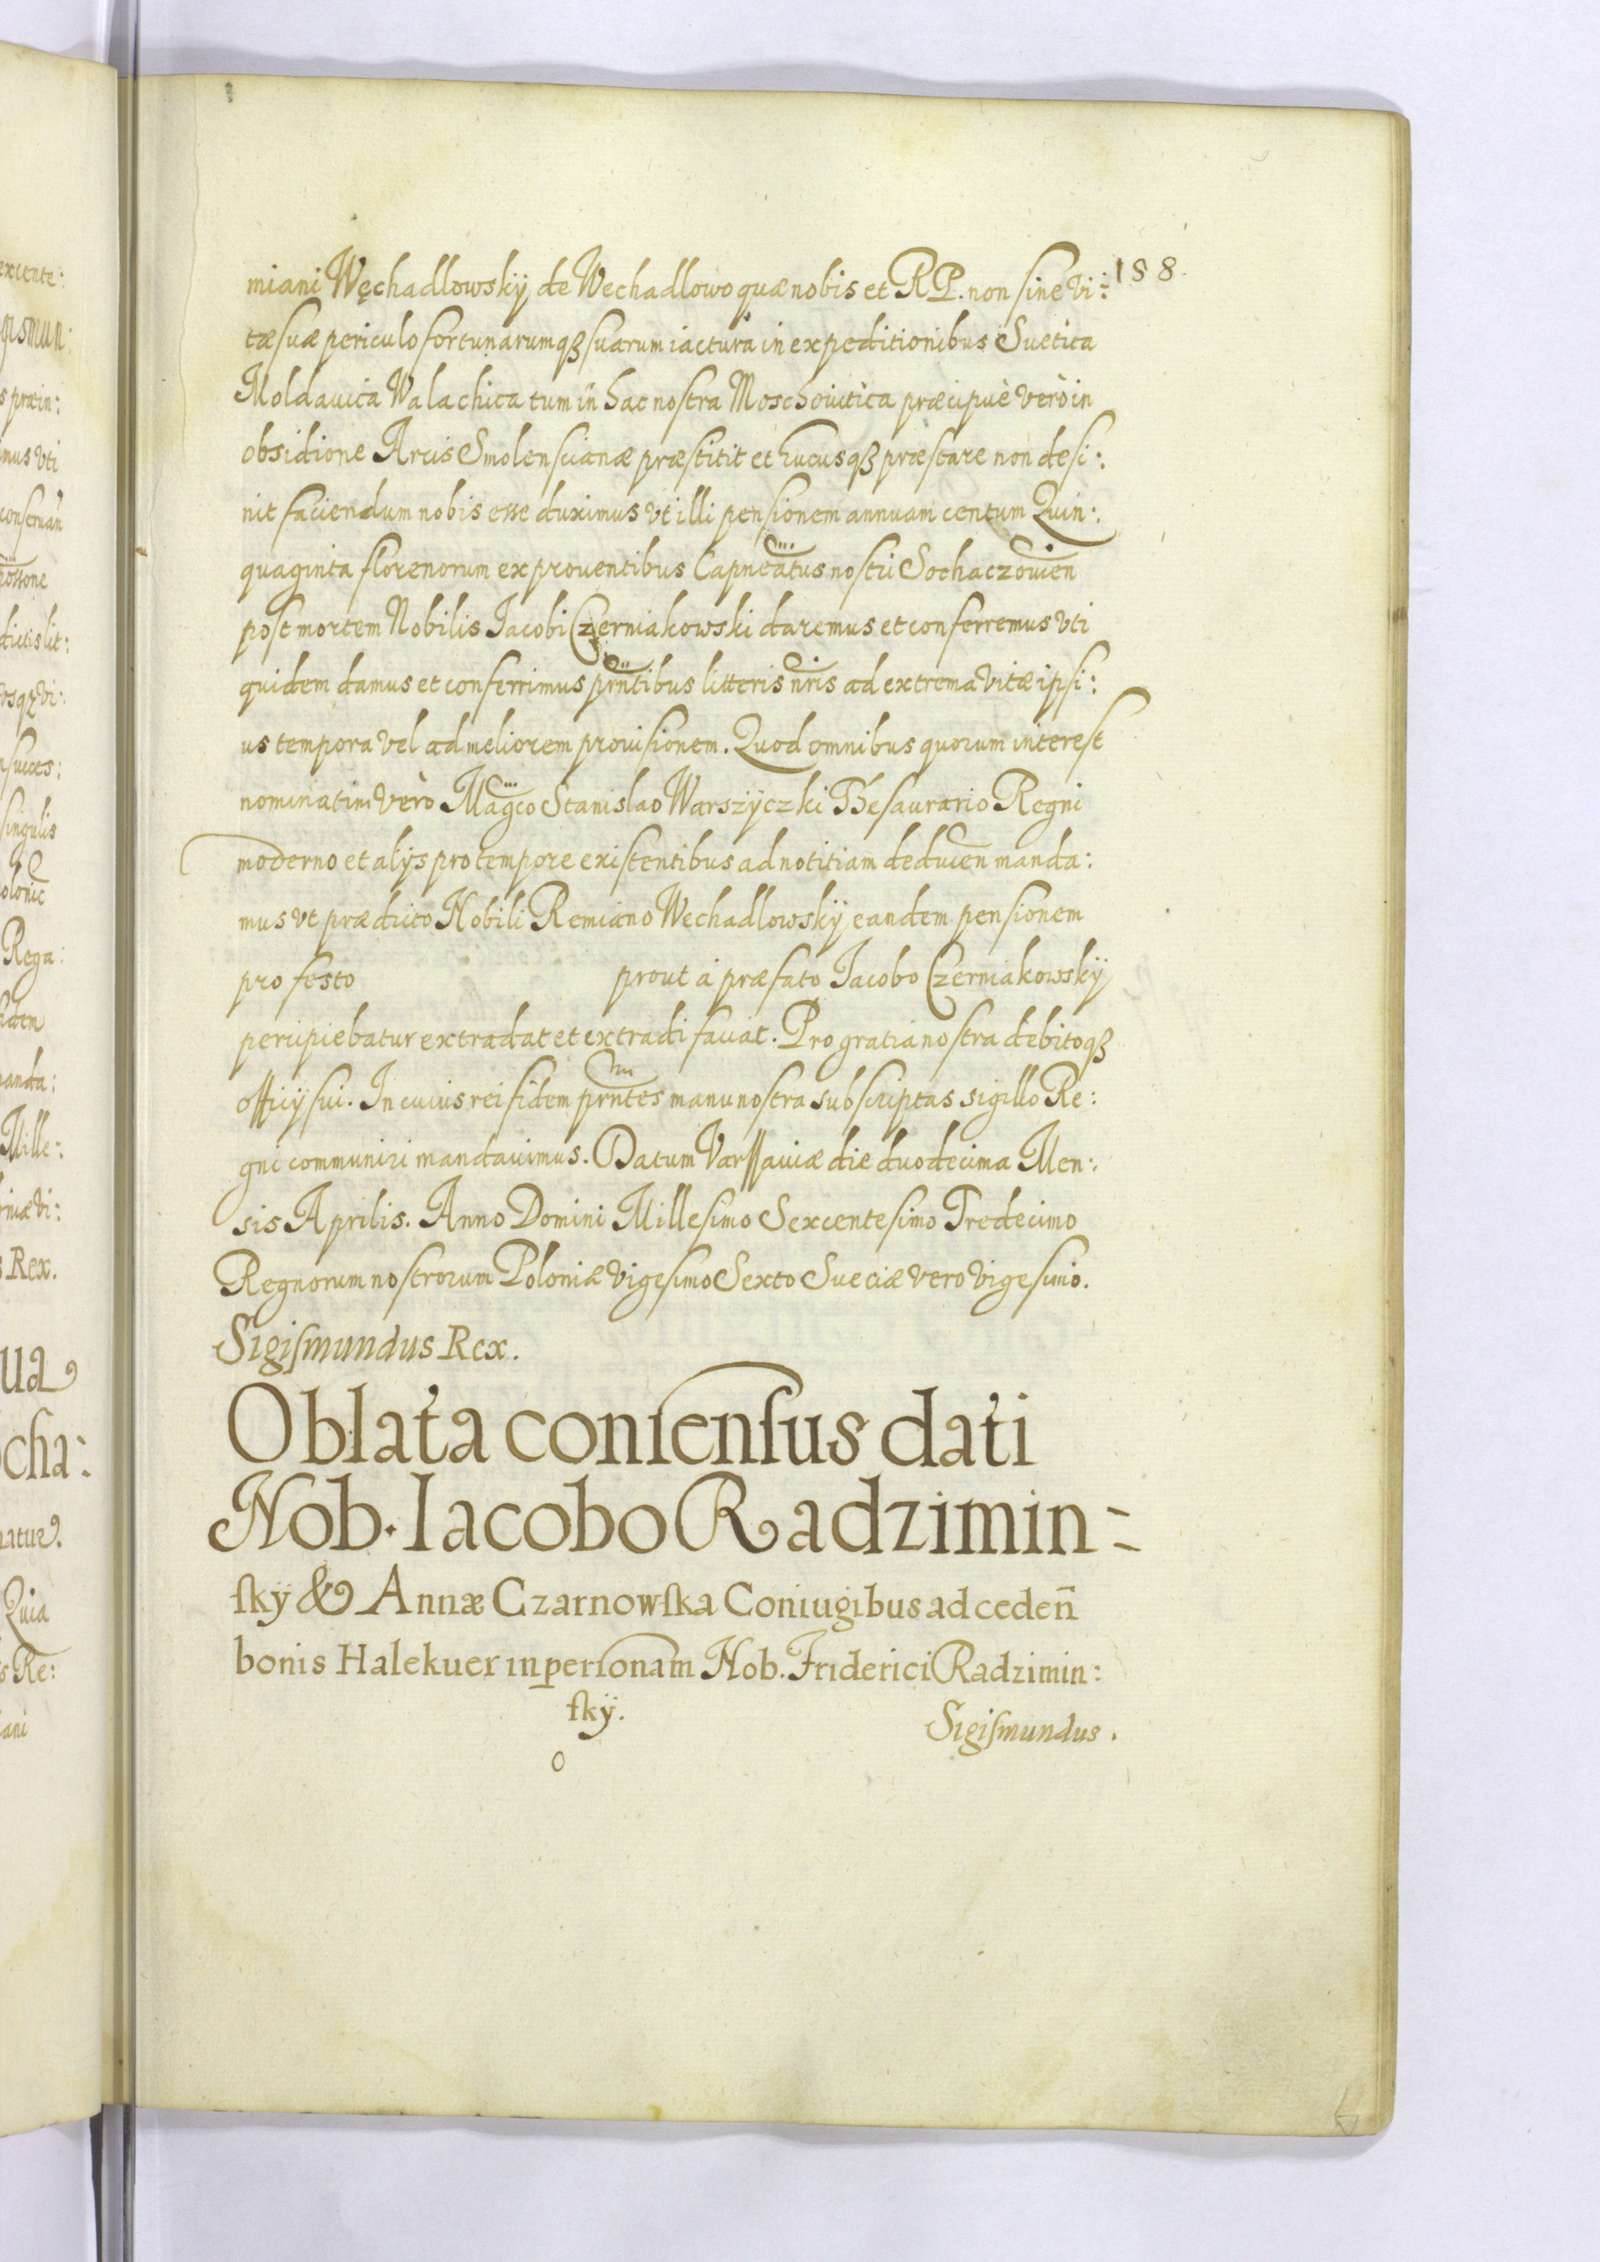 188
miani Węchadlowskÿ de Wechadlowo quæ nobis et R P. non sine Vi:
tæ suæ periculo fortunarumqꝫ suarum iactura in expeditionibus Suetica
Moldauica Walachica tum in hac nostra Moschouitica præcipuè verò in
obsidione Arcis Smolenscianæ præstitit et hucusqꝫ præstare non desi:
nit faciendum nobis esse duximus vt illi pensionem annuam centum Quin:
quaginta florenorum ex prouentibus Capneatus nostri Sochaczouien
post mortem Nobilis Iacobi Czerniakowski daremus et conferremus vti
quidem damus et conferrimus prntibus litteris nris ad extrema vitæ ipsi:
us tempora vel ad meliorem prouisionem. Quod omnibus quorum interest
nominatim verò Magco Stanislao Warszÿczki Thesaurario Regni
moderno et alÿs pro tempore existentibus ad notitiam deducen manda:
mus vt prædicto Nobili Remiano Wechadlowskÿ eandem pensionem
pro festo prout à præfato Iacobo Czerniakowskÿ
percipiebatur extradat et extradi faciat. Pro gratia nostra debitoqꝫ
officÿ sui. In cuius rei fidem prntes manu nostra subscriptas sigillo Re:
gni communiri mandauimus. Datum Varssauiæ die duodecima Men:
sis Aprilis. Anno Domini Millesimo Sexcentesimo Tredecimo
Regnorum nostrorum Poloniæ Vigesimo Sexto Sueciæ vero Vigesimo.
Sigismundus Rex.
Oblata consensus dati
Nob. Iacobo Radzimin=
skÿ & Annæ Czarnowska Coniugibus ad ceden̄
bonis Halekuer in personam Nob. Friderici Radzimin:
skÿ.
Sigismundus.